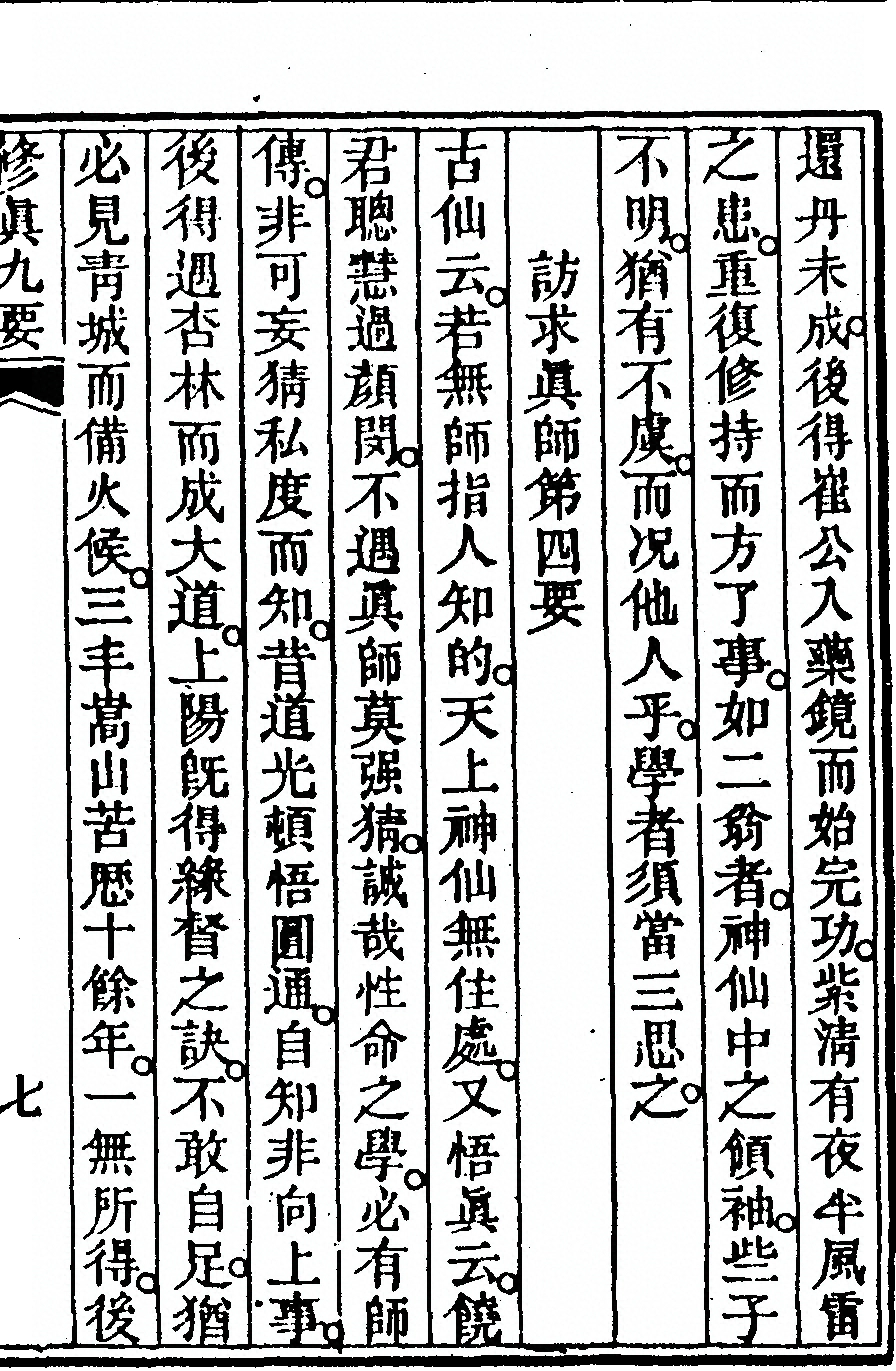 還丹未成。後得崔公入藥鏡而始完功。紫淸有夜半風雷
之患。重復修持而方了事。如二翁者。神仙中之領袖。些子
不明。猶有不虞。而況他人乎。學者須當三思之。
訪求眞師第四要
古仙云。若無師指人知的。天上神仙無住處。又悟眞云。饒
君聰慧過顔閔。不遇眞師莫强猜。誠哉性命之學。必有師
傳。非可妄猜私度而知。昔道光頓悟圓通。自知非向上事。
後得遇杏林而成大道。上陽旣得緣督之訣。不敢自足。猶
必見靑城而備火候。三丰嵩山苦歷十餘年。一無所得。後
修眞九要
七